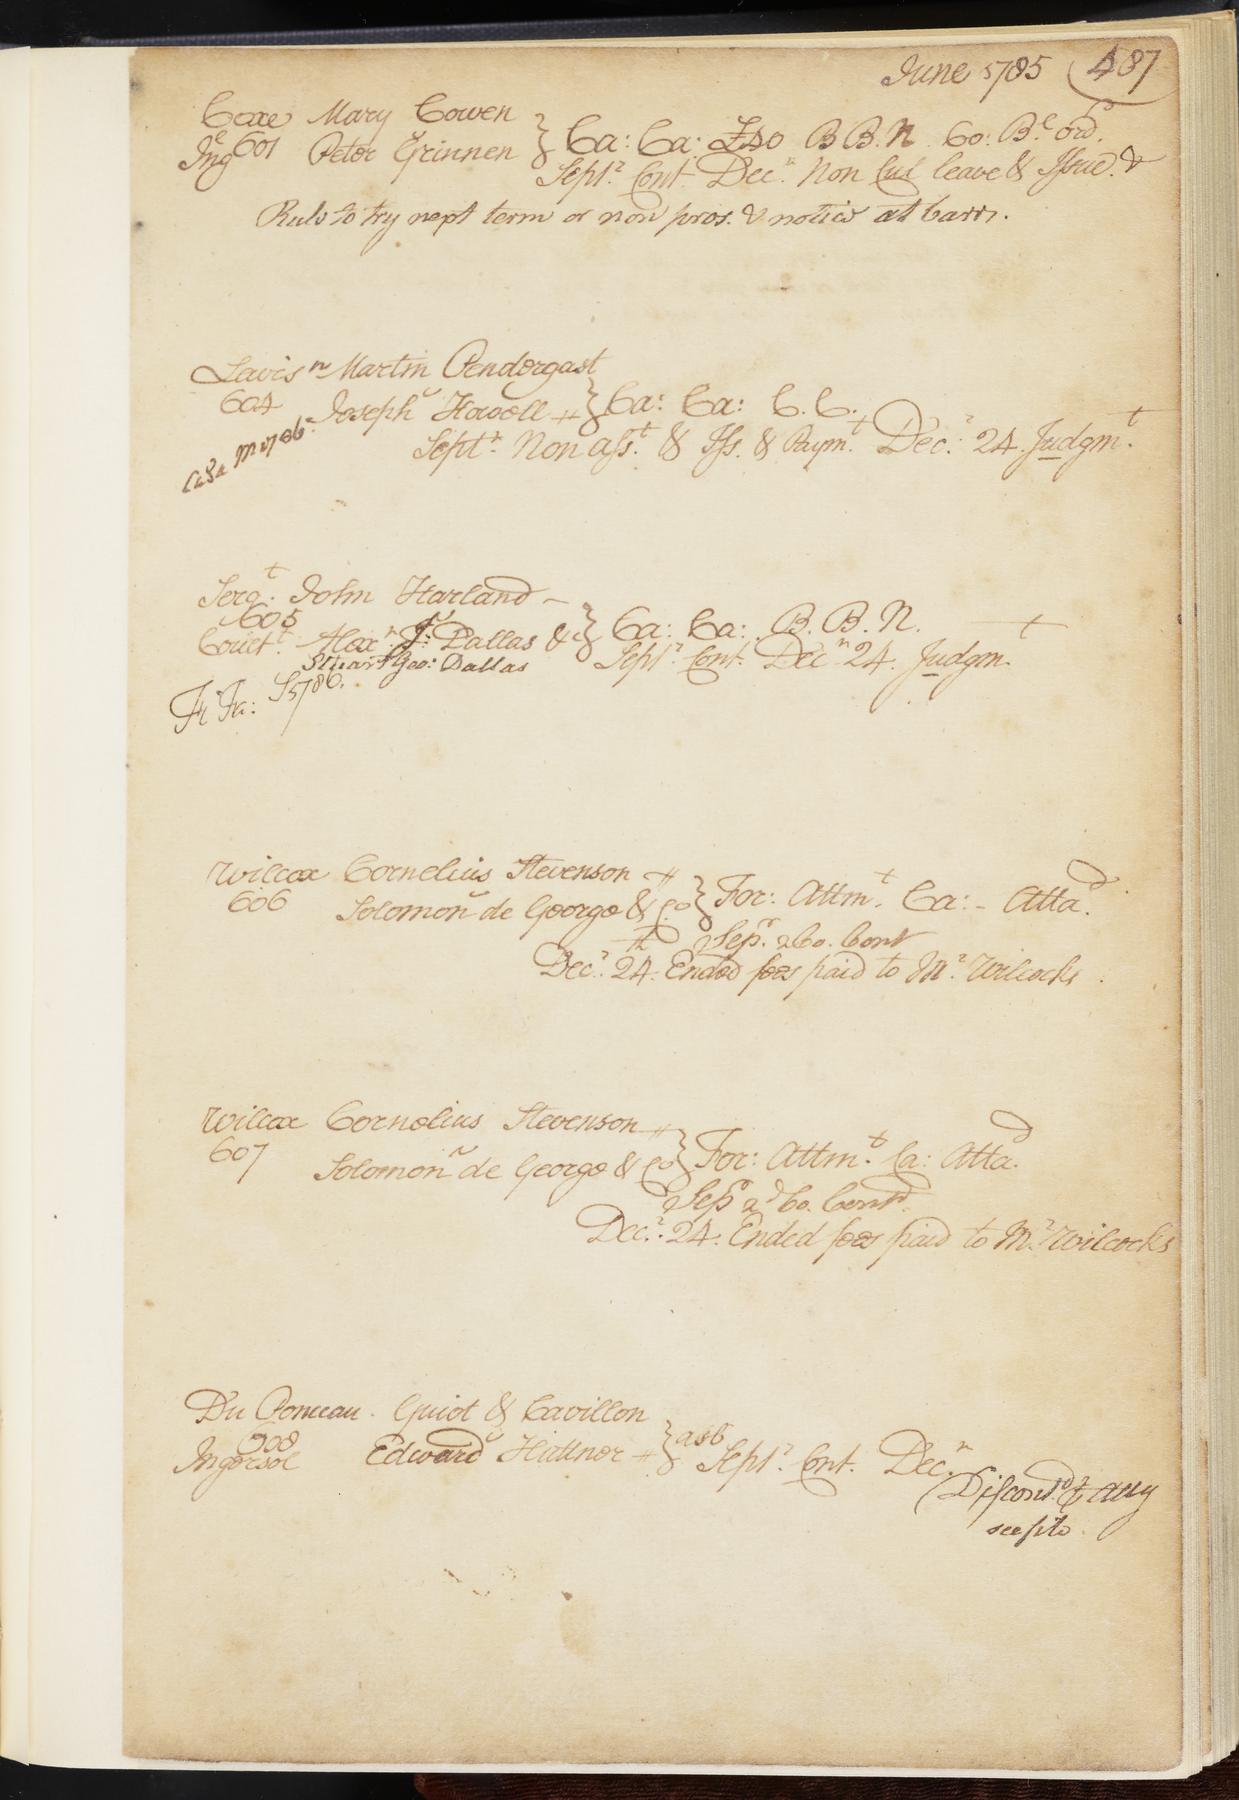 June 1785 (487
Coxe Mary Cowen
Ing.e 601 Peter Grinnen } Ca: Ca: £40 B B. N. Co: B.e ord.
Sept.r Cont. Dec.r Non Cul leave & Issue. &
Rule to try next term or non pros. & notice at barr.
Lewis Martin Pendergast
604 Joseph Howell } Ca: Ca: C. C.
Sept.r Non ass.t & Iss. & Paym.t Dec.r 24. Judgm.t
Ca Sa
Serg.t John Harland
605
Alex.r J: Dallas & } Ca: Ca: B. B. N.
Stuart Geo: Dallas Sept.r Cont. Dec.r 24. Judgm.t
Fi Fa: S 1786.
Wilcox Cornelius Stevenson
606 Solomon de George & Co } For: Attm.t Ca: - Atta.d
Sep.r 2 Co. Cont
Dec.r 24. Ended fees paid to M.r Wilcocks
Wilcox Cornelius Stevenson
607 Solomon de George & Co } For: Attm.t Ca: Atta.d
Sep.r 2d Co. Cont.d
Dec.r 24. Ended fees paid to M.r Wilcocks
Du Ponceau. Guiot & Cavillon
608
Ingersol Edward Hattner } asb
Sept.r Cont. Dec.r
(Discont.d p Atty
see file.